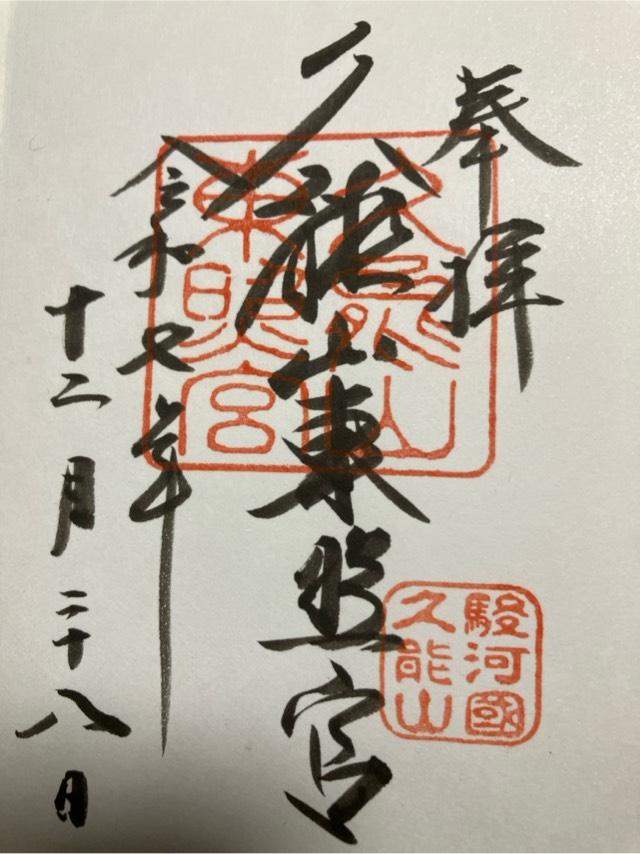 奉拝
久能山東照宮
令和七年
十二月二十八日
久能山
東照宮
駿河國
久能山